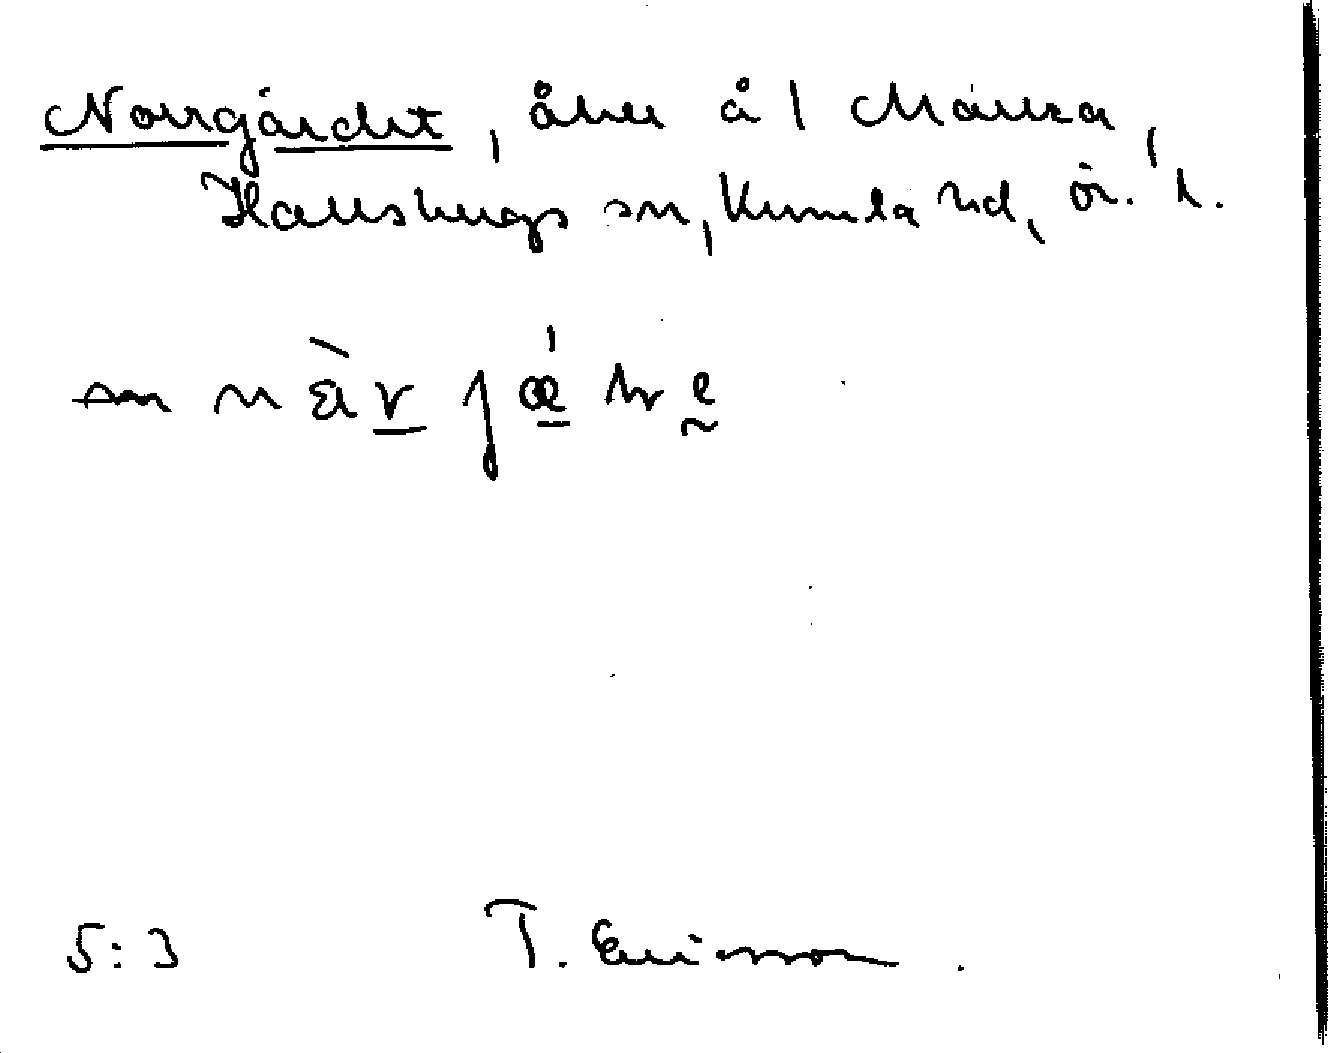 Norrgärdet, åker å 1 Märsta,
Hallsbergs sn, Kumla hd, Ör. l.
5:3 T. Ericsson.